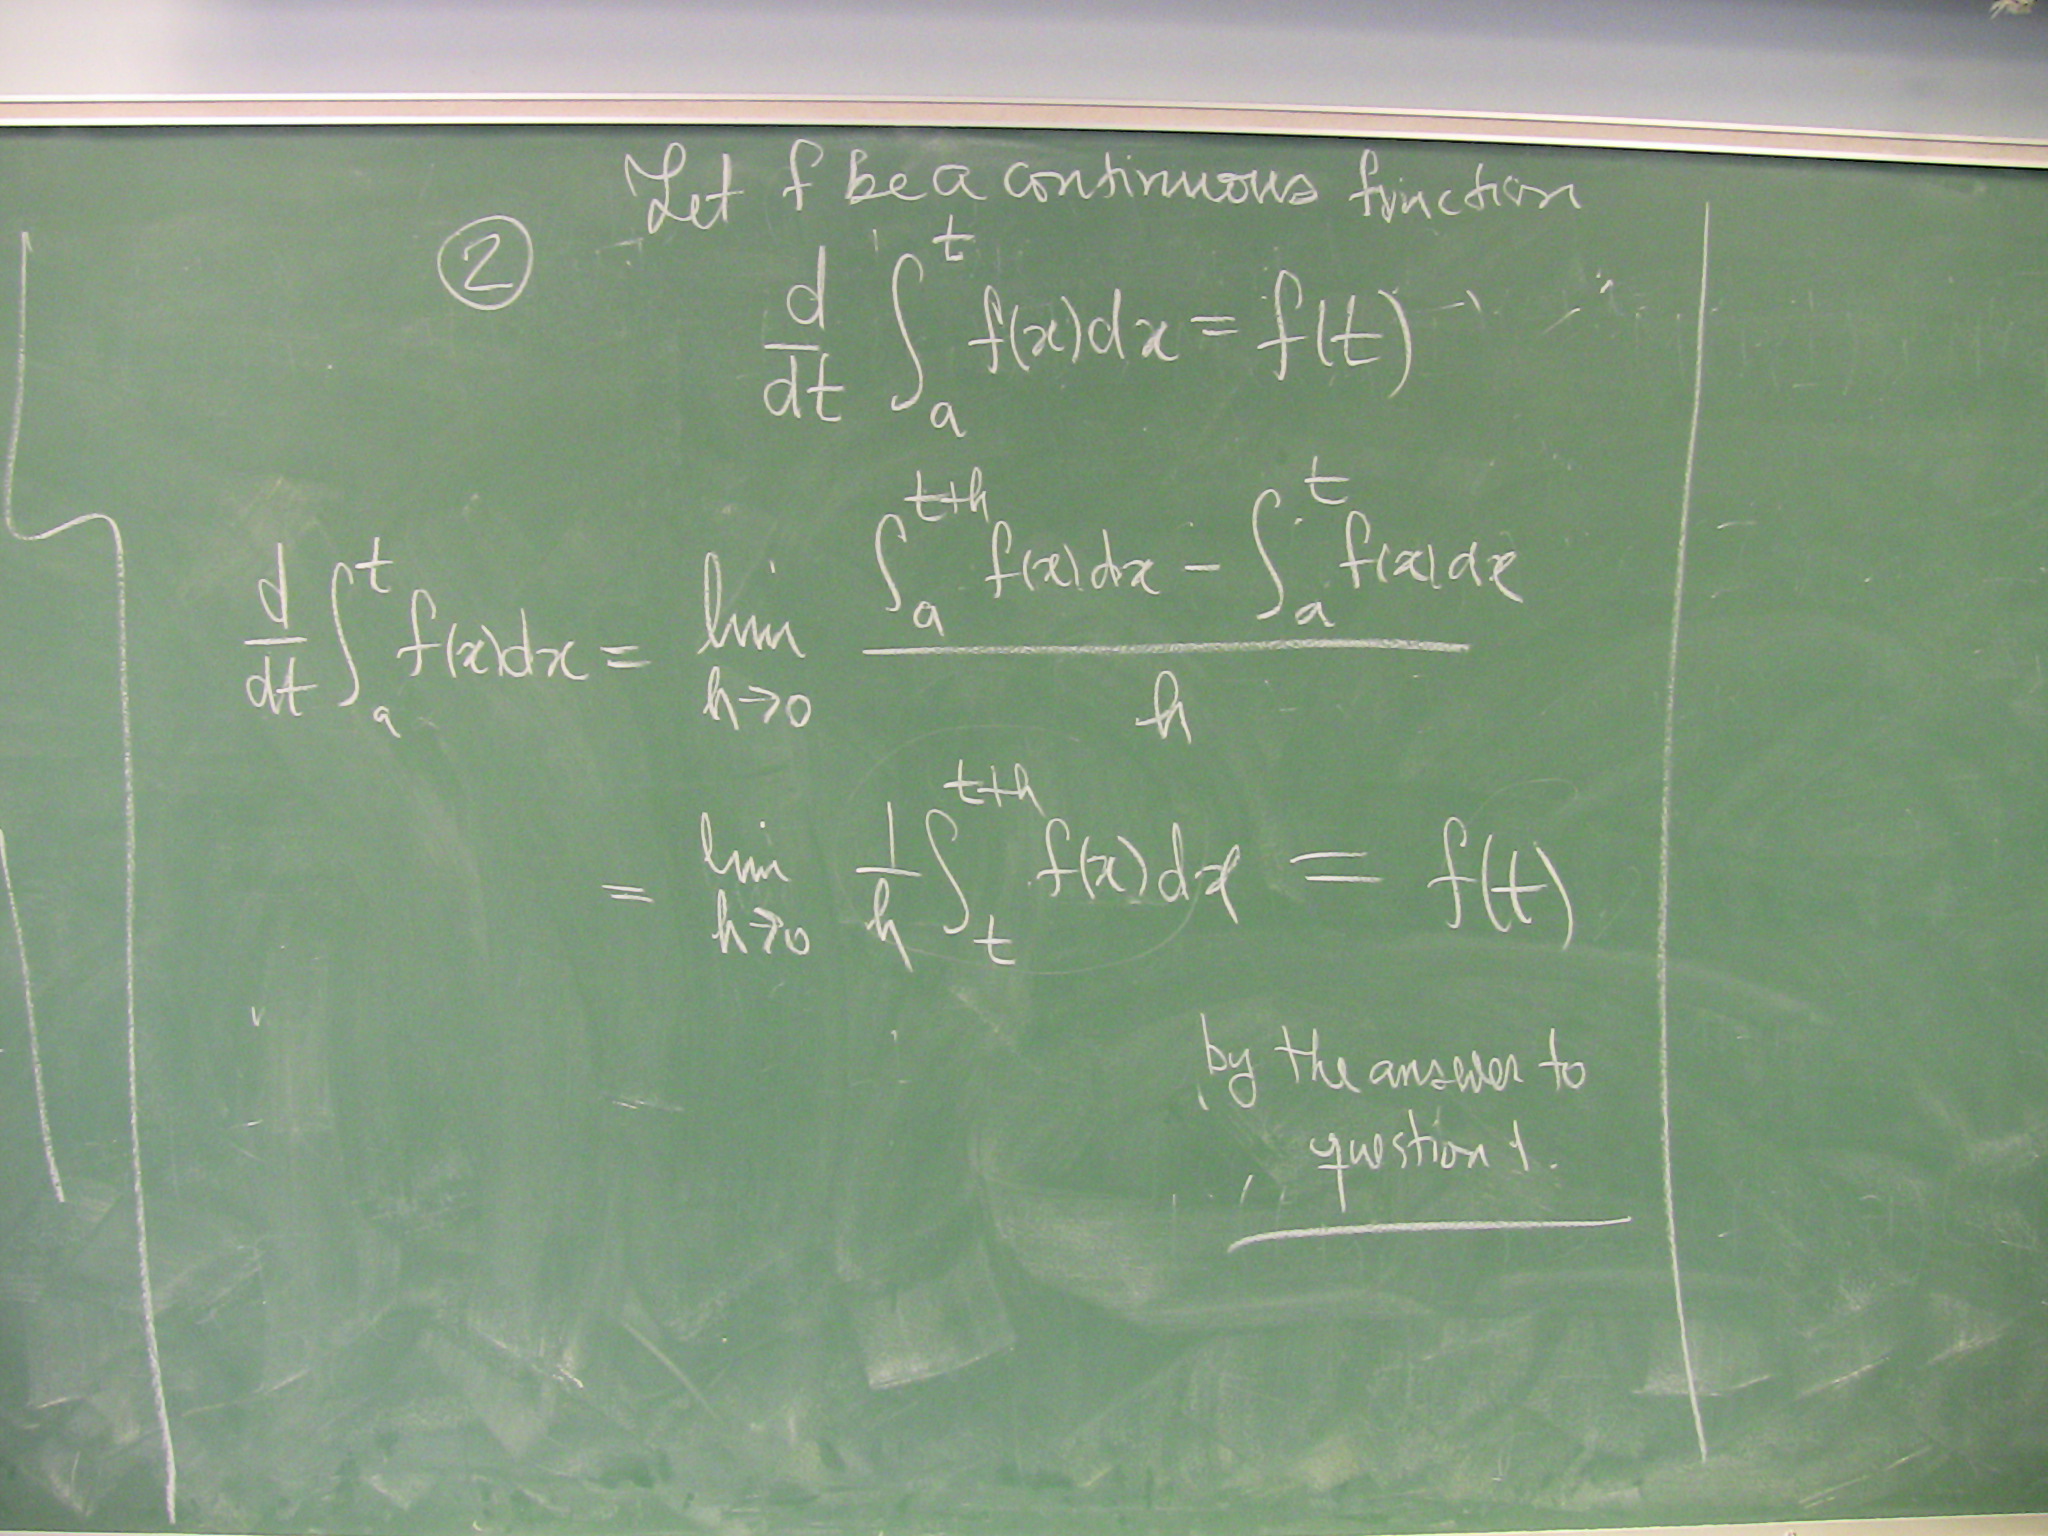 Let f be a continuous function
②
d/dt ∫_a^t f(x)dx = f(t)
d/dt ∫_a^t f(x)dx = lim_{h→0} (∫_a^{t+h} f(x)dx − ∫_a^t f(x)dx) / h
= lim_{h→0} 1/h ∫_t^{t+h} f(x)dx = f(t)
by the answer to
question 1.